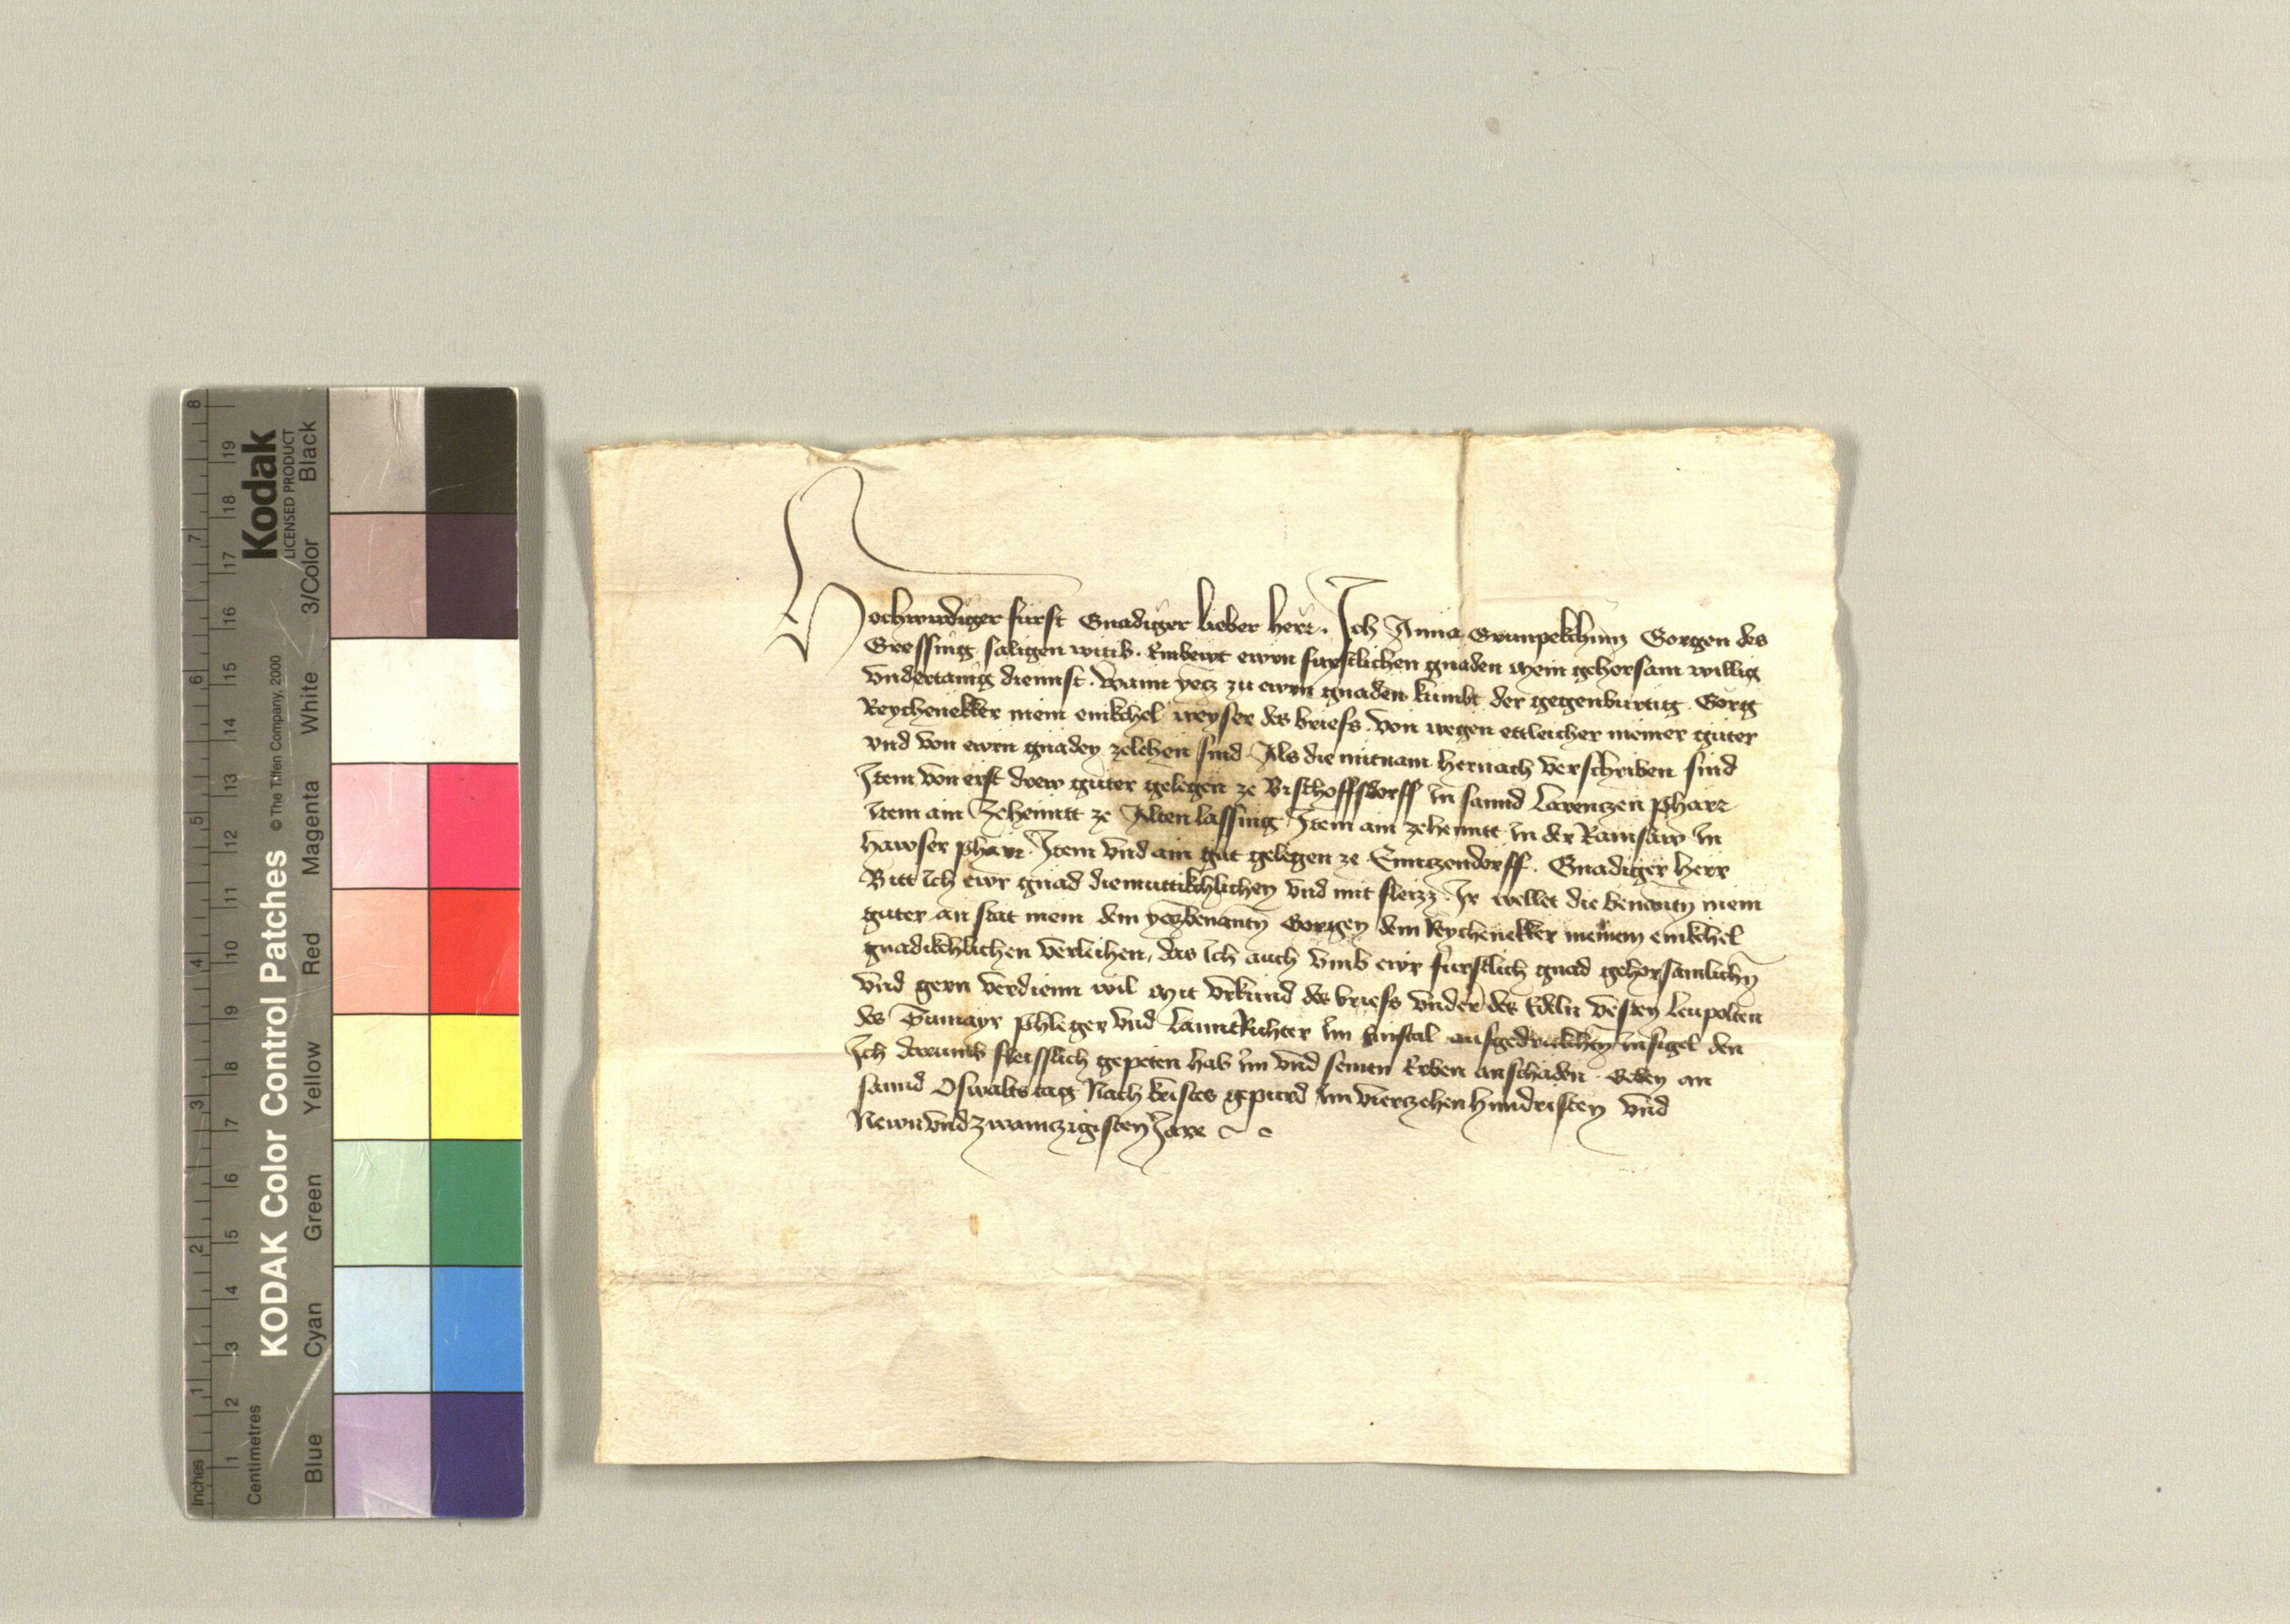 Hochwirdiger fürst Gnadiger lieber herr. Ich Anna Grunpekchinn Gorgen des
Gressing saligen witib. Embewt ewrn furstlichen gnaden mein gehorsam willig
vndertanig diennst. Wann yecz zu ewrn gnaden kumbt der gegenburtig Gorg
Reychenekker mein enikchel weyser des briefs. von wegen ettleicher meiner güter
vnd von ewrn gnaden zelehen sind. Als die mitnam hernach verschriben sind
Item von erst drew güter gelegen ze Bisthoffsdorff in sannd Larenczen pharr
Item ain Zehenntt ze Alten lassing Item ain zehenntt in der Ramsaw in
hawser pharr. Item vnd ain gut gelegen ze Enntzendorff. Gnadiger herr
Bitt ich ewr gnad diemuttikchlichen vnd mit fleizz. Ir wellet die benantn mein
güter an stat mein dem yeczbenantn Gorgen dem Reychenekker meinem enikchel
gnadikchlichen verleihen, das ich auch vmb ewr fürstlich gnad gehorsamlichn
vnd gern verdienn wil Mit vrkund des briefs vnder des Edeln vesten Leupolten
des phleger vnd LanntRichter im Ennstal aufgedrukchten Insigel den
Ich darumb fleisslich gepeten hab im vnd seinen Erben anschaden. Geben an
sannd Oswalts tag Nach kristes gepurd im vierczehenhundristen vnd
Newnvndzwainczigisten Jare
KODAK Color Control Patches
Kodak
LICENSED PRODUCT
© The Tiffen Company, 2000
Inches
1 2 3 4 5 6 7 8
Centimetres
1 2 3 4 5 6 7 8 9 10 11 12 13 14 15 16 17 18 19
Blue Cyan Green Yellow Red Magenta White 3/Color Black